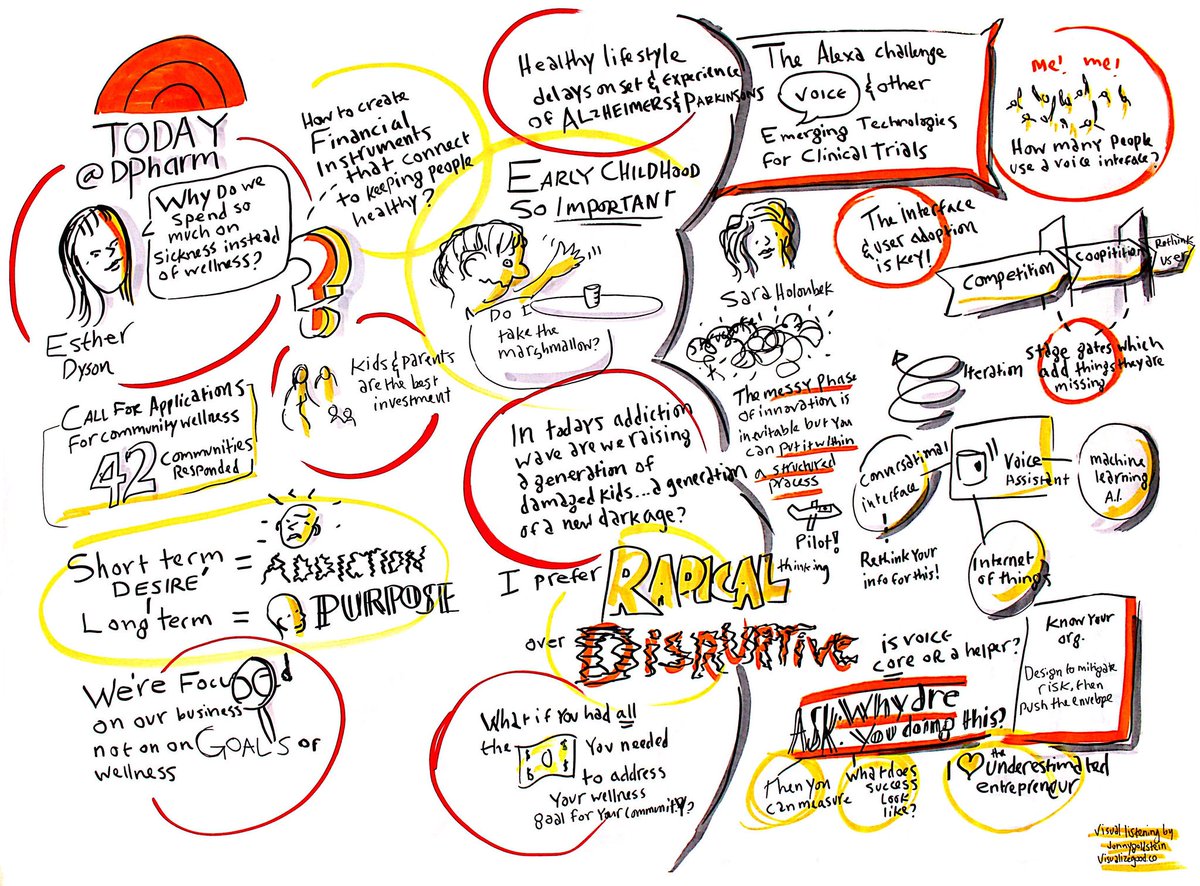 TODAY
@DPharm
Why Do we
spend so
much on
sickness instead
of wellness?
Esther
Dyson
How to create
Financial
Instruments
that connect
to keeping people
healthy?
Kids & Parents
are the best
investment
CALL For Applications
For community wellness
42 Communities
Responded
Short term
DESIRE = ADDICTION
Long term = PURPOSE
We're Focused
on our business
not on on GOALS of
wellness
Healthy lifestyle
delays on set & Experience
of ALZHEIMERS & PARKINSONS
EARLY CHILDHOOD
SO IMPORTANT
Do I
take the
marshmallow?
In todays addiction
wave are we raising
a generation of
damaged kids...a generation
or a new dark age?
I prefer RADICAL thinking
over DISRUPTIVE
What if You had all
the $ $ $ $ You needed
to address
Your wellness
goal for Your community?
The Alexa challenge
VOICE & other
Emerging Technologies
for Clinical Trials
me! me!
How many People
use a voice interface?
The interface
& user adoption
is key!
Sara Holoubek
The messy phase
of innovation is
inevitable but you
can put it within
a structured
process
Pilot!
Competition
Coopitition
Rethink
user
Stage gates which
add things they are
missing
Iteration
Conversational
interface
Voice
Assistant
machine
learning
A.I.
Rethink Your
info for this!
Internet
of things
is voice
core or a helper?
Know Your
org.
Design to mitigate
risk, then
push the envelope
ASK: Why are
You doing this?
Then You
can measure
What does
success
look
like?
I the Underestimated
entrepreneur
Visual listening by
Jonnygoldstein
Visualizegood.co